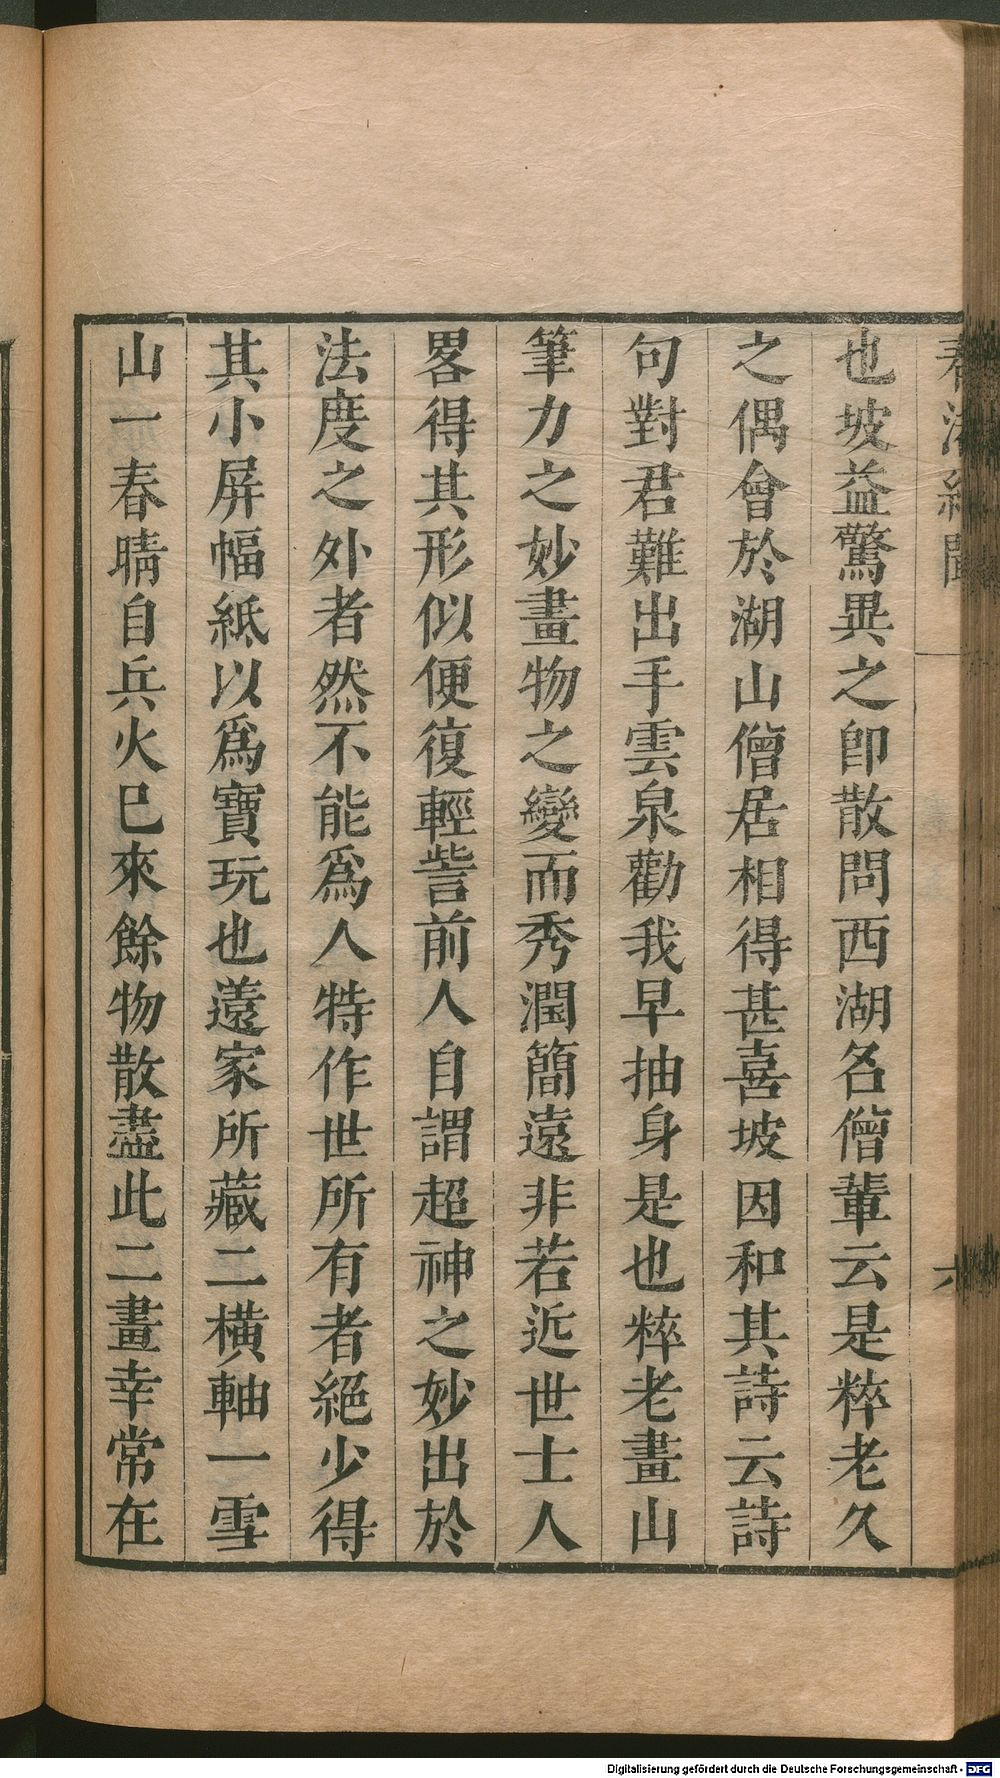 春渚紀聞
六
也坡益驚異之卽散問西湖名僧輩云是粹老久
之偶會於湖山僧居相得甚喜坡因和其詩云詩
句對君難出手雲泉勸我早抽身是也粹老畫山
筆力之妙畫物之變而秀潤簡遠非若近世士人
畧得其形似便復輕訾前人自謂超神之妙出於
法度之外者然不能爲人特作世所有者絕少得
其小屛幅紙以爲寶玩也薳家所藏二橫軸一雪
山一春晴自兵火已來餘物散盡此二畫幸常在
Digitalisierung gefördert durch die Deutsche Forschungsgemeinschaft - DFG